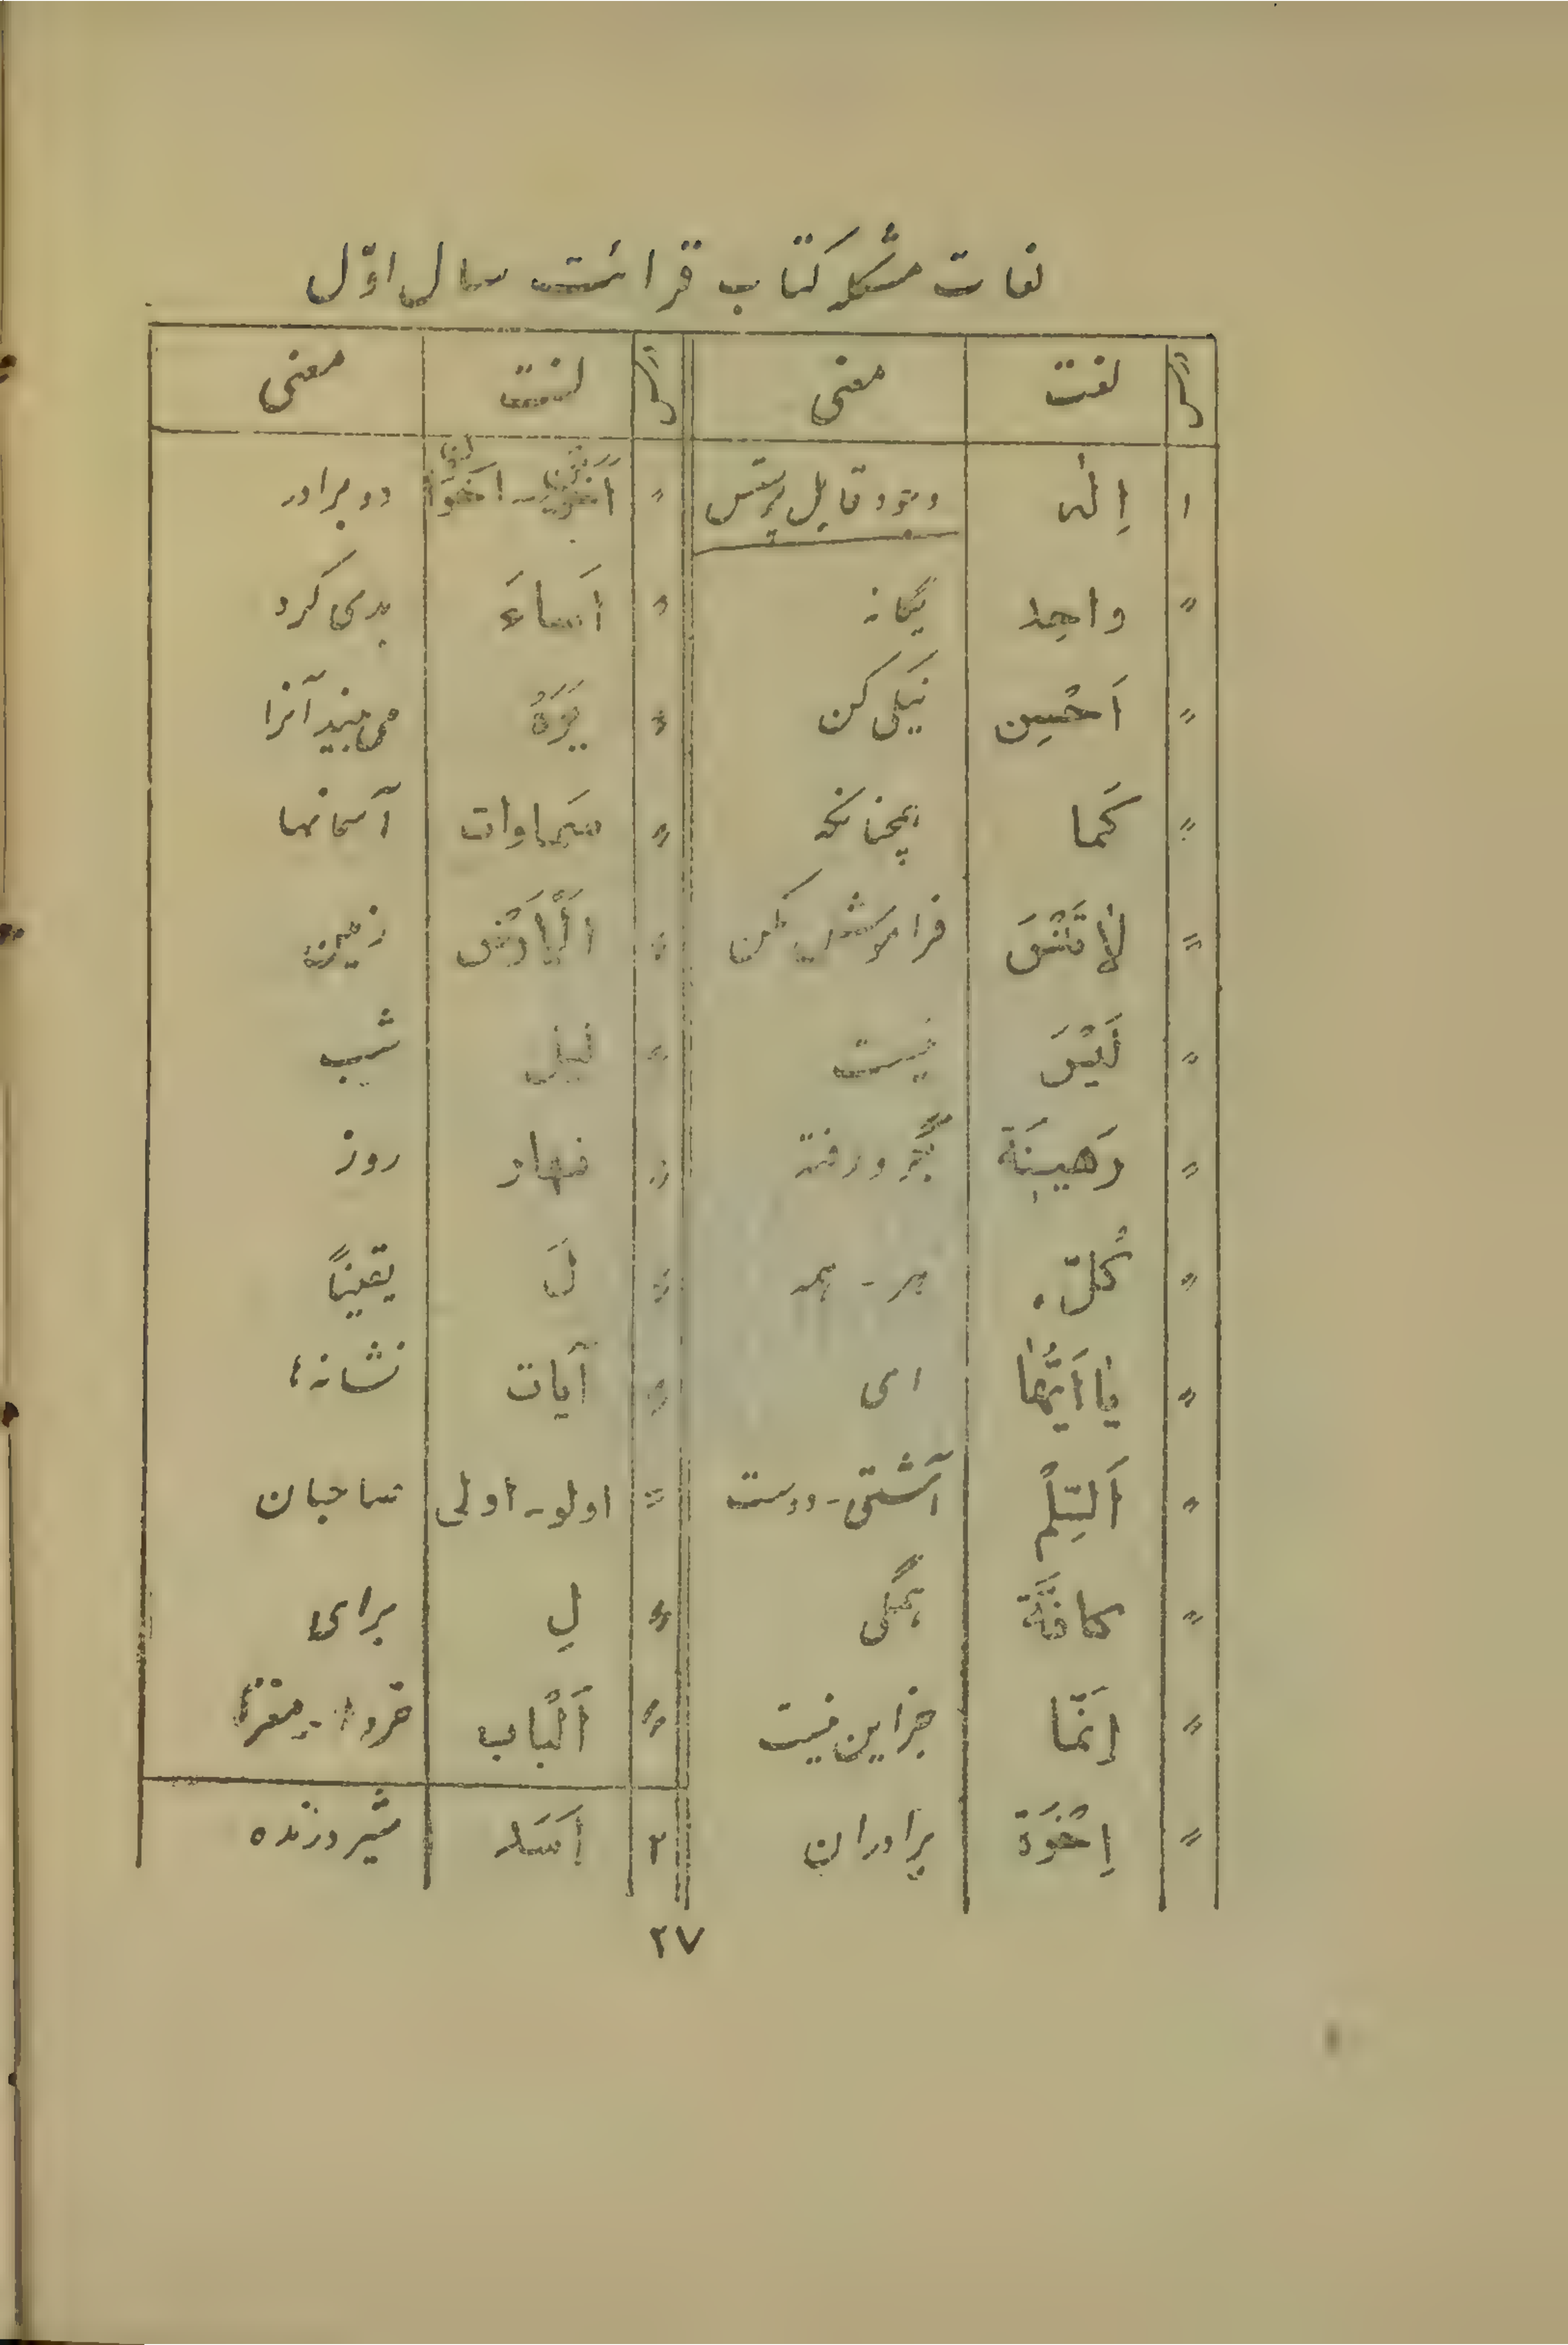 لغات مشکله کتاب قرائت سال اوّل
درس لغت معنی درس لغت معنی
۱ اِلٰه وجود قابل پرستش " اَخَوَیْن - اَخَوان دو برادر
" واحِد یگانه " اَساءَ بدی کرد
" اَحْسِن نیکی کن " یَرَهُ می بیند آنرا
" کَما همچنانکه " سَماوات آسمانها
" لاٰتَنْسَ فراموش مکن " اَلْاَرْض زمین
" لَیْسَ نیست " لیل شب
" رَهینَة گرو رفته " نهار روز
" کُلّ هر - همه " لَ یقیناً
" یٰا اَیُّهٰا ای " آیات نشانه‌ها
" اَلسِّلْم آشتی - دوست " اولو - اولی صاحبان
" کافَّة همگی " لِ برای
" اِنَّما جز این نیست " اَلْباب خردها - مغزها
" اِخْوَة برادران ۲ اَسَد شیر درنده
۲۷